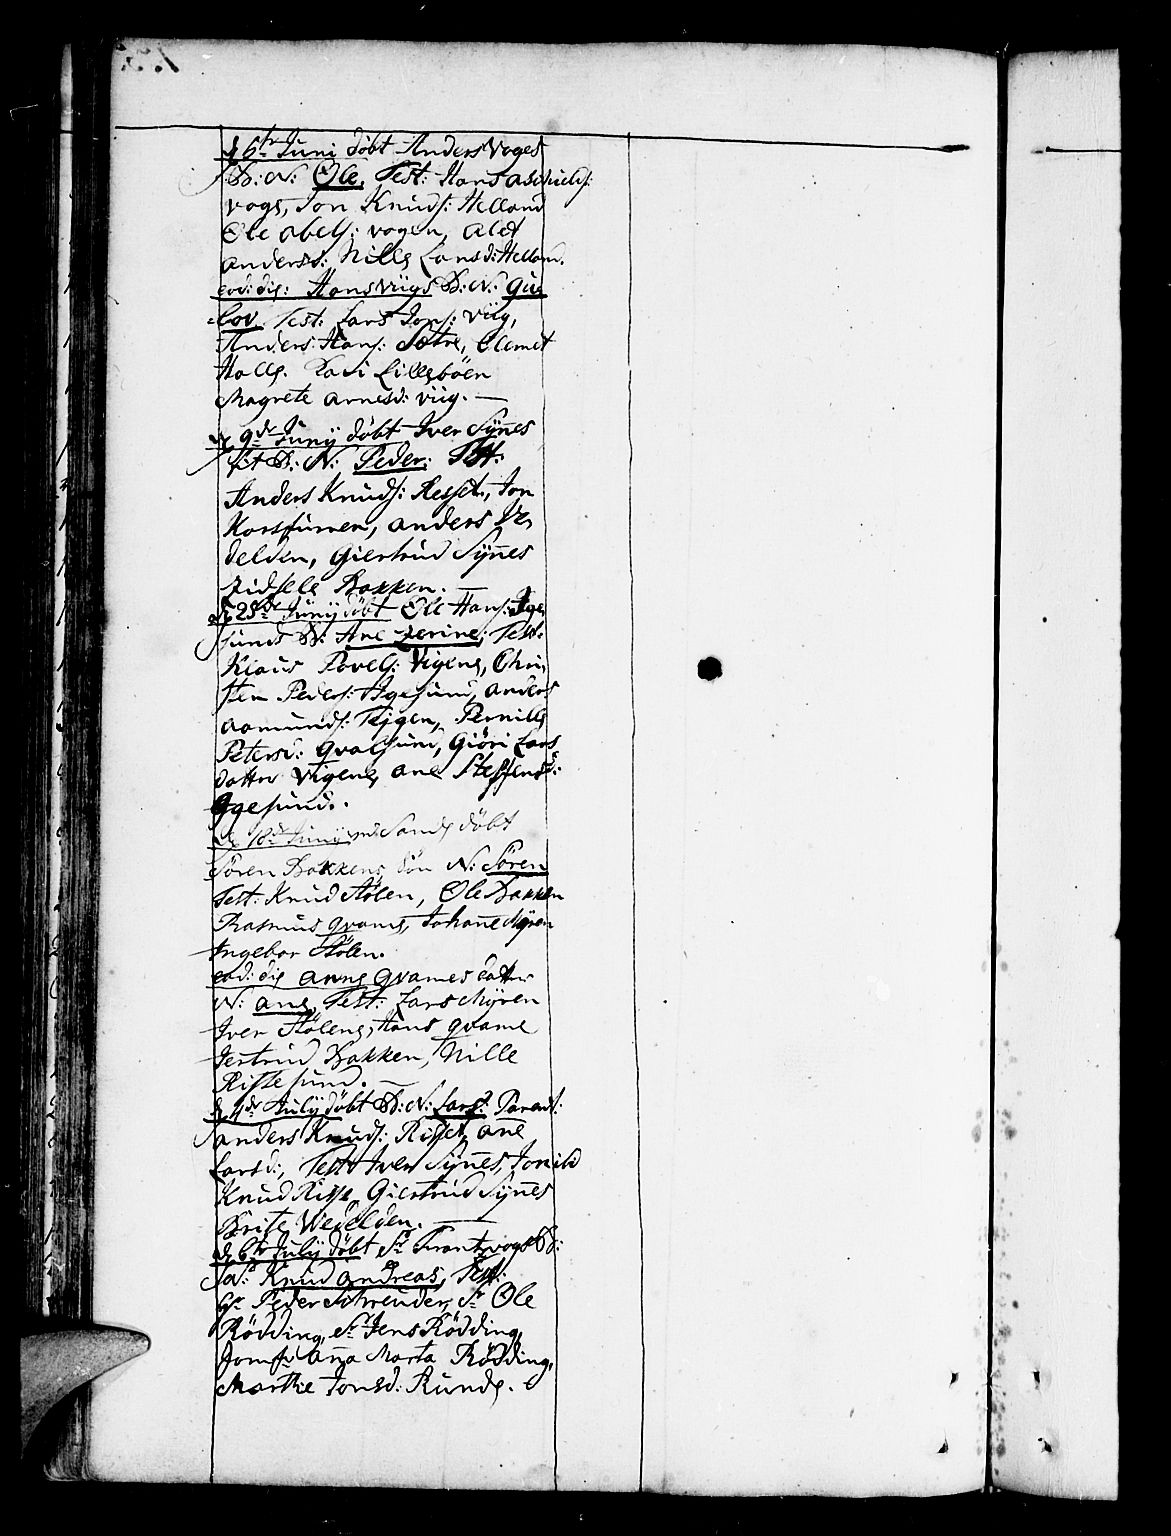 d 6te Juni döbt Anders Voges
B: N: Ole. Test: Hans Aschields:
vogs, Jon Knuds: Helland
Ole Abels: vogen, Alet
Andersd: Nille Larsd: Helland.
eod: die: Hans Viigs B: N: Gu-
lov. Test: Lars Jons: Viig,
Anders Hans: Sætre, Clemet
Holls. Kari Lilleböen
Magrete Arnesd: viig. —
d 9de Junÿ döbt Iver Sÿnes
sit B: N: Peder: Test:
Anders Knuds: Resset, Jon
Korsfurren, Anders Ve-
delden, Giertrud Sÿnes
Zidsele Bakken. —
d 25de Junÿ döbt Ole Hans: Ige-
sunds B: Ane Zerine, Test:
Klaus Povels: Vigene, Chri-
sten Peders: Igesund, Anders
Aamunds: Teigen, Pernille
Petersd: Qvalsund, Giöri Lars
datter Vigene, Ane Steffensd:
Igesund.
d 18de Junÿ Sande döbt
Sören Bakkens Sön N: Sören
Test: Knud Stölen, Ole Bakken
Rasmus Qvame, Johane Mÿren
Ingebor Stölen.
eod: die Anne Qvames datter
N: Ane, Test: Lars Mÿren
Iver Stölens, Hans Qvame
Jertrud Bakken, Nille
Rissesund. —
d 4de Julÿ döbt B: N: Lars: Parent:
Anders Knuds: Risset, Ane
Larsd:, Test: Iver Sÿnes, Jonild
Knud Risse, Giertrud Sÿnes
Brite Wedelden. —
d 6te Julÿ döbt Sr Frantz vogs B:
N: Knud Andreas, Test:
Hr Peder Schreuder, Sr Ole
Rödding, Sr Jens Rödding,
Jomfr Ana Marta Rödding,
Marthe Jonsd: Runde.